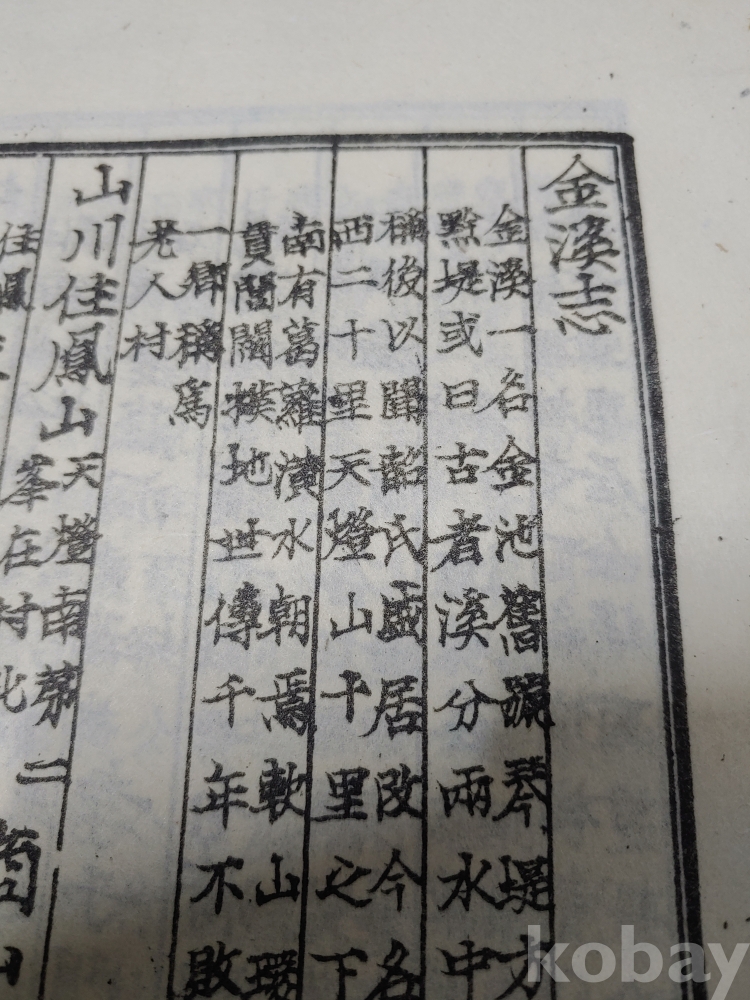 金溪志
金溪一名金池舊號琴堤方
點堤或曰古者溪分兩水中
稱後以聞韶氏盛居改今名
西二十里天燈山十里之下
南有萬羅潢水朝焉軟山環
貢閭閻撲地世傳千年不敗
一鄉稱爲
老人村
山川佳鳳山
天燈南第二
峯在村北
kobay